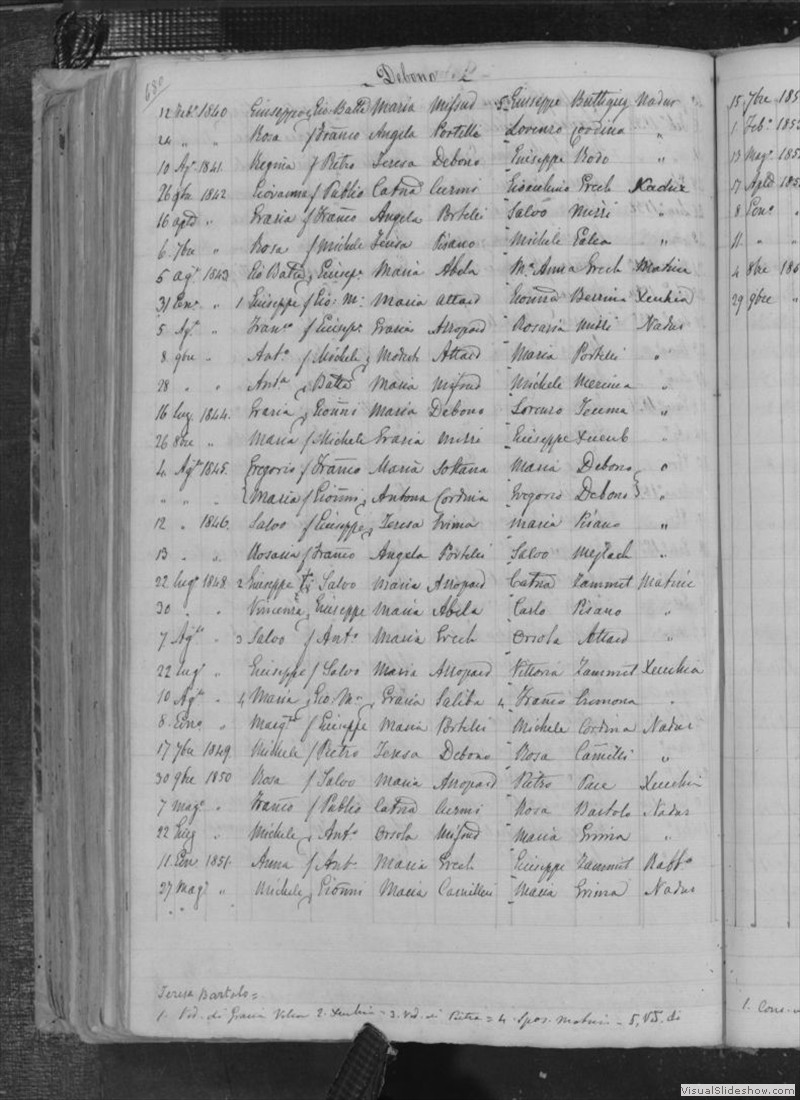 680
Debono
12 Feb. 1840 Giuseppe f Gio Batta Maria Mifsud 5 Giuseppe Buttigieg Nadur
24 " " Rosa f Franco Angela Portelli Lorenzo Cordina "
10 Ag. 1841. Regina f Pietro Teresa Debono Giuseppe Bodo "
26 9bre 1842 Giovanna f Publio Catna Curmi Grech Nadur
16 " Grazia f Franco Angela Portelli Salvo Misri "
6 7bre " Rosa f Michele Teresa Pisano Michele "
5 Ag. 1843 Gio Batta f Giusep. Maria Abela Ma. Anna Grech Matrice
31 Enr. " 1 Giuseppe f Gio: Ma. Maria Attard Gionna Xeuchia
5 Ag. " Franco f Giusep. Grazia Rosaria Misri Nadur
8 9bre " Anto. f Michele Modesta Attard Maria Portelli "
28 " " Anta f Batta Maria Mifsud Michele "
16 lug. 1844. Grazia f Gionni Maria Debono Lorenzo "
26 8bre " Maria f Michele Grazia Misri Giuseppe Xuereb "
4. Ag. 1845. Gregorio f Franco Maria Soltana Maria Debono "
" " " Maria f Gionni Antona Cordina Gregorio Debono "
12 " 1846. Salvo f Giuseppe Teresa Grima Maria Pisano "
13 " " Rosaria f Franco Angela Portelli Salvo "
22 lug. 1848 2 Giuseppe f Salvo Maria Catna Zammit Matrice
30 " " Vincenza f Giuseppe Maria Abela Carlo Pisano "
7 Ag. " 3 Salvo f Anto. Maria Grech Orsola Attard "
22 lug. " Giuseppe f Salvo Maria Vittoria Zammit Xeuchia
10 Ag. " 4 Maria f Gio: Ma. Grazia Saliba 4 Franco "
8 Enr. " Marg. f Giuseppe Maria Portelli Michele Cordina Nadur
17 7bre 1849. Michele f Pietro Teresa Debono Rosa Camilleri "
30 9bre 1850 Rosa f Salvo Maria Pietro Pace Xeuchia
7 mag. " Franco f Publio Catna Curmi Rosa Bartolo Nadur
22 lug " Michele f Anto. Orsola Mifsud Maria Grima "
11 Enr 1851. Anna f Anto. Maria Grech Giuseppe Zammit Rabbto
27 Mag. " Michele f Gionni Maria Camilleri Maria Grima Nadur
Teresa Bartolo =
1. Ved. di Grazia 2. Xeuchia - 3. Ved. di = 4. Spos. Matrice - 5. Ved. di
15 7bre 185
1. Feb. 185
13 Mag. 185
17 185
8 "
11. " "
4 8bre 185
29 9bre "
1.
VisualSlideshow.com